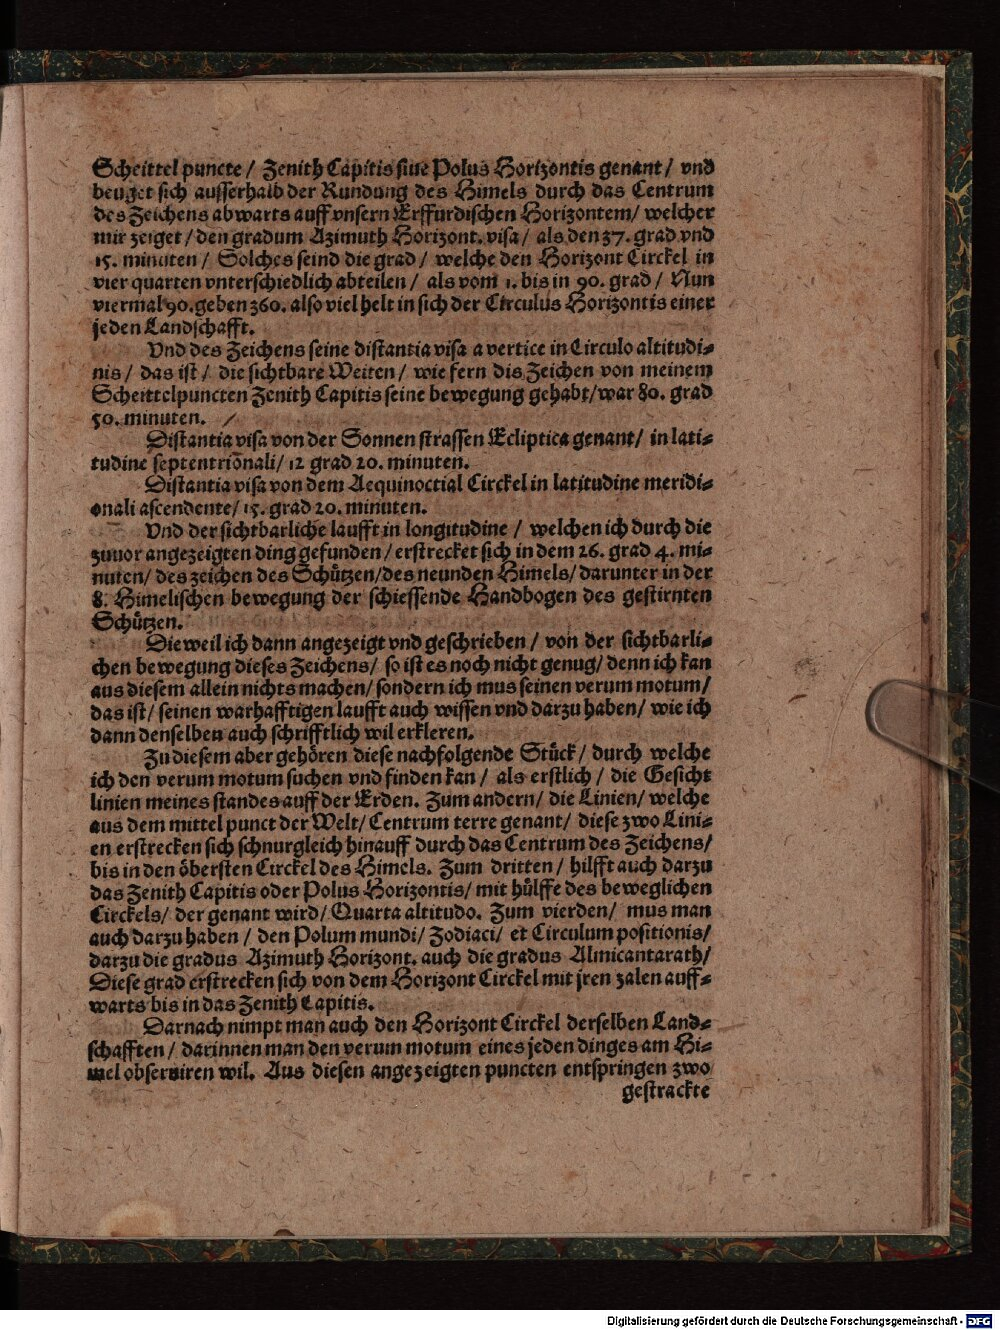 Scheittel puncte / Zenith Capitis siue Polus Horizontis genant / vnd
beuget sich ausserhalb der Rundung des Himels durch das Centrum
des Zeichens abwarts auff vnsern Erffurdischen Horizontem / welcher
mir zeiget / den gradum Azimuth Horizont. visa / als den 37. grad vnd
15. minuten / Solches seind die grad / welche den Horizont Circkel in
vier quarten vnterschiedlich abteilen / als vom 1. bis in 90. grad / Nun
viermal 90. geben 360. also viel helt in sich der Circulus Horizontis einer
jeden Landschafft.
Vnd des Zeichens seine distantia visa a vertice in Circulo altitudi-
nis / das ist / die sichtbare Weiten / wie fern dis Zeichen von meinem
Scheittelpuncten Zenith Capitis seine bewegung gehabt / war 80. grad
50. minuten.
Distantia visa von der Sonnen strassen Ecliptica genant / in lati-
tudine septentrionali / 12 grad 20. minuten.
Distantia visa von dem Aequinoctial Circkel in latitudine meridi-
onali ascendente / 15. grad 20. minuten.
Vnd der sichtbarliche laufft in longitudine / welchen ich durch die
zuuor angezeigten ding gefunden / erstrecket sich in dem 26. grad 4. mi-
nuten / des zeichen des Schützen / des neunden Himels / darunter in der
8. Himelischen bewegung der schiessende Handbogen des gestirnten
Schützen.
Dieweil ich dann angezeigt vnd geschrieben / von der sichtbarli-
chen bewegung dieses Zeichens / so ist es noch nicht genug / denn ich kan
aus diesem allein nichts machen / sondern ich mus seinen verum motum /
das ist / seinen warhafftigen laufft auch wissen vnd darzu haben / wie ich
dann denselben auch schrifftlich wil erkleren.
Zu diesem aber gehören diese nachfolgende Stück / durch welche
ich den verum motum suchen vnd finden kan / als erstlich / die Gesicht
linien meines standes auff der Erden. Zum andern / die Linien / welche
aus dem mittel punct der Welt / Centrum terre genant / diese zwo Lini-
en erstrecken sich schnurgleich hinauff durch das Centrum des Zeichens /
bis in den öbersten Circkel des Himels. Zum dritten / hilfft auch darzu
das Zenith Capitis oder Polus Horizontis / mit hülffe des beweglichen
Circkels / der genant wird / Quarta altitudo. Zum vierden / mus man
auch darzu haben / den Polum mundi / Zodiaci / et Circulum positionis /
darzu die gradus Azimuth Horizont. auch die gradus Almicantarath /
Diese grad erstrecken sich von dem Horizont Circkel mit jren zalen auff-
warts bis in das Zenith Capitis.
Darnach nimpt man auch den Horizont Circkel derselben Land-
schafften / darinnen man den verum motum eines jeden dinges am Hi-
mel obseruiren wil. Aus diesen angezeigten puncten entspringen zwo
gestrackte
Digitalisierung gefördert durch die Deutsche Forschungsgemeinschaft - DFG